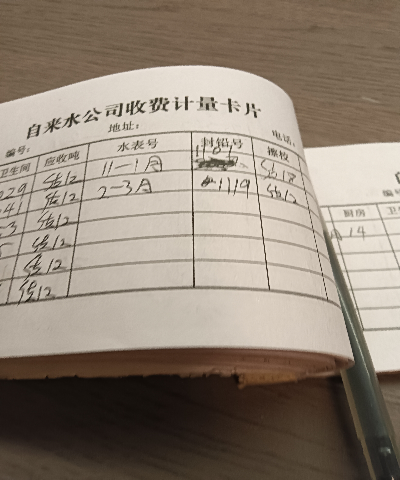 自来水公司收费计量卡片
编号: 地址: 电话:
卫生间 应收吨 水表号 封铅号
229 结12 11-1月 结18
41 结12 2-3月 1119 结12
3 结12
结12
结12
结12
厨房
14